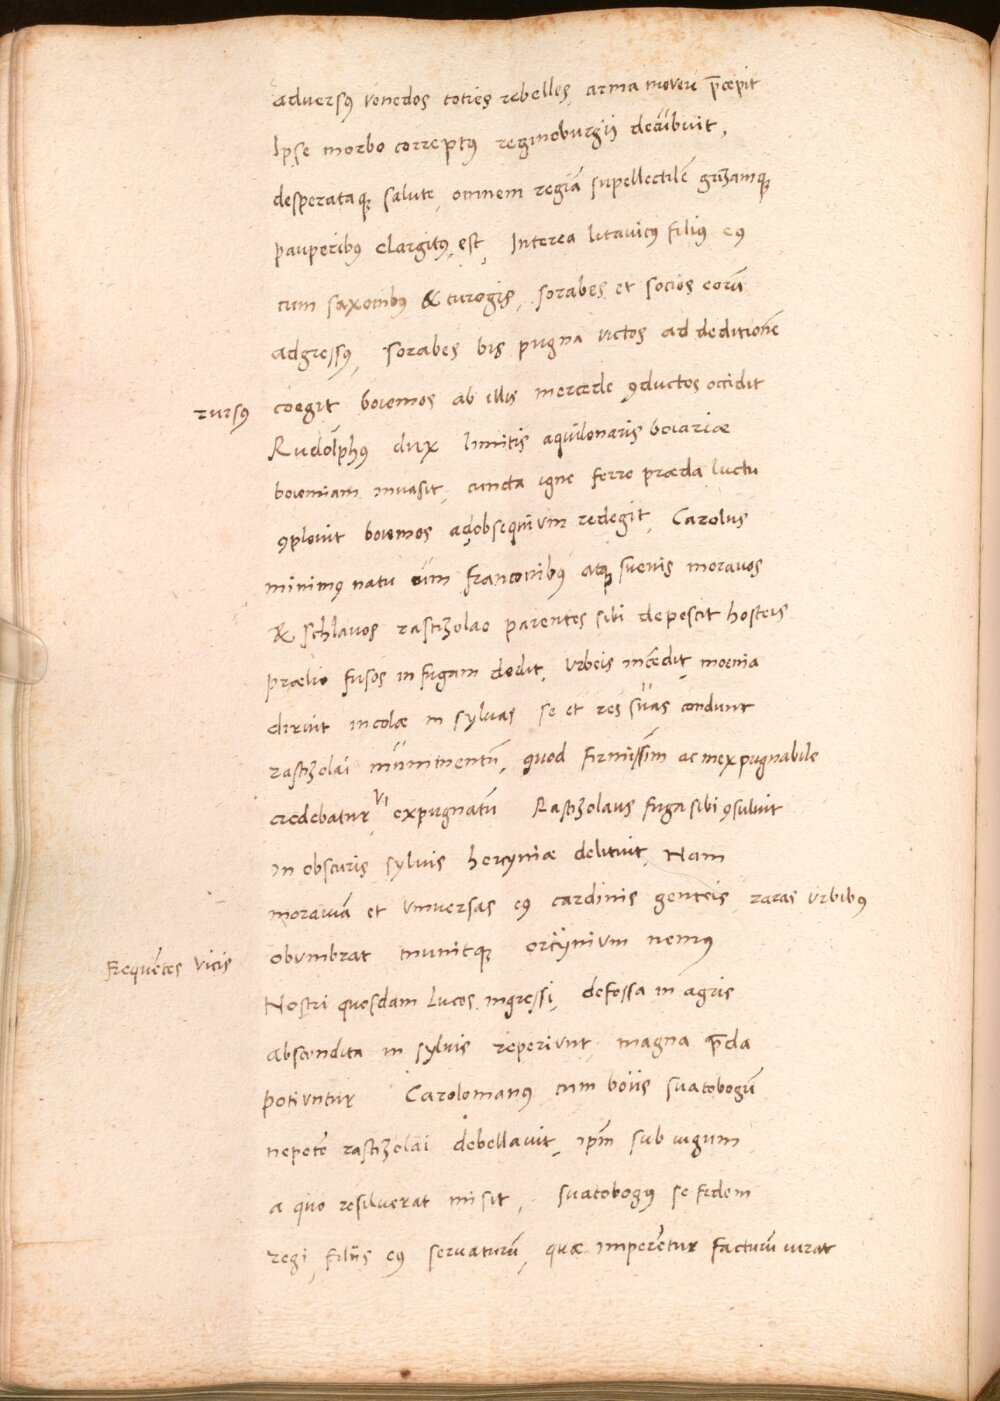 adversꝰ venedos toties rebelles, arma movere p̄cepit
Ipse morbo correptꝰ reginoburgii decubuit,
desperataqꝫ salute, omnem regiā supellectilē gazamqꝫ
pauperibꝰ elargitꝰ est, Interea litavicꝰ filiꝰ eꝰ
cum saxonibꝰ & turogis, sorabes et socios eorū
adgressꝰ, sorabes bis pugna victos ad deditionē
rursꝰ coegit boiemos ab illis mercede ꝯductos occidit
Rudolphꝰ dux limitis aquilonaris boiariae
boiemiam invasit, cuncta igne ferro praeda luctu
ꝯplevit boiemos ad obsequium redegit, Carolus
minimꝰ natu cum franconibꝰ atqꝫ suevis moravos
& schlavos rastizolao parentes sibi deposcit hosteis
praelio fusos in fugam dedit, urbeis incēdit, moenia
diruit incolae in sylvas se et res suas condunt
rastizolai munimentū, quod firmissim̄ ac inexpugnabile
credebatur vi expugnatū Rastizolaus fuga sibi ꝯsuluit
in obscuris sylvis hercyniae delituit, Nam
moraviā et universas eꝰ cardinis genteis, raras urbibꝰ
Frequētes vicis obumbrat munitqꝫ orcynium nemꝰ
Nostri quosdam lucos ingressi, defossa in agris
abscondita in sylvis reperiunt, magna p̄da
potiuntur Carolomanꝰ cum boiis suatobogū
nepotē rastizolai debellavit, ip̄m sub iugum
a quo resiluerat misit, suatobogꝰ se fidem
regi, filiis eꝰ servaturū, quae imperētur facturū iurat